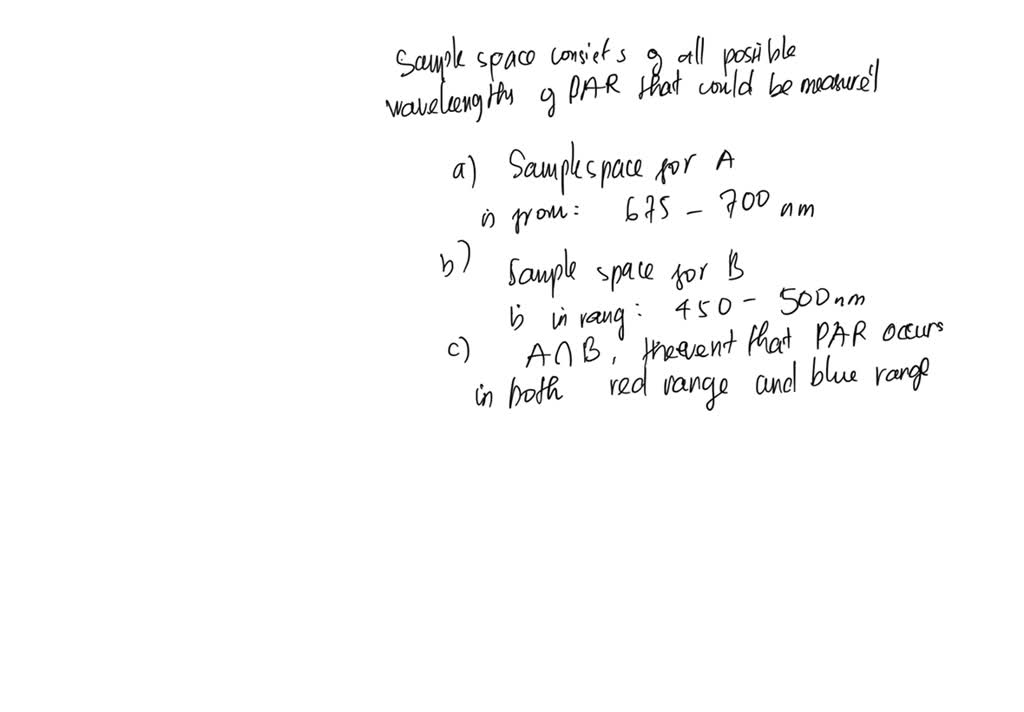 Sample space consists of all possible
wavelengths of PAR that could be measure'd
a) Sample space for A
is from: 675 - 700 nm
b) Sample space for B
is in rang: 450 - 500 nm
c) A∩B, the event that PAR occurs
in both red range and blue range